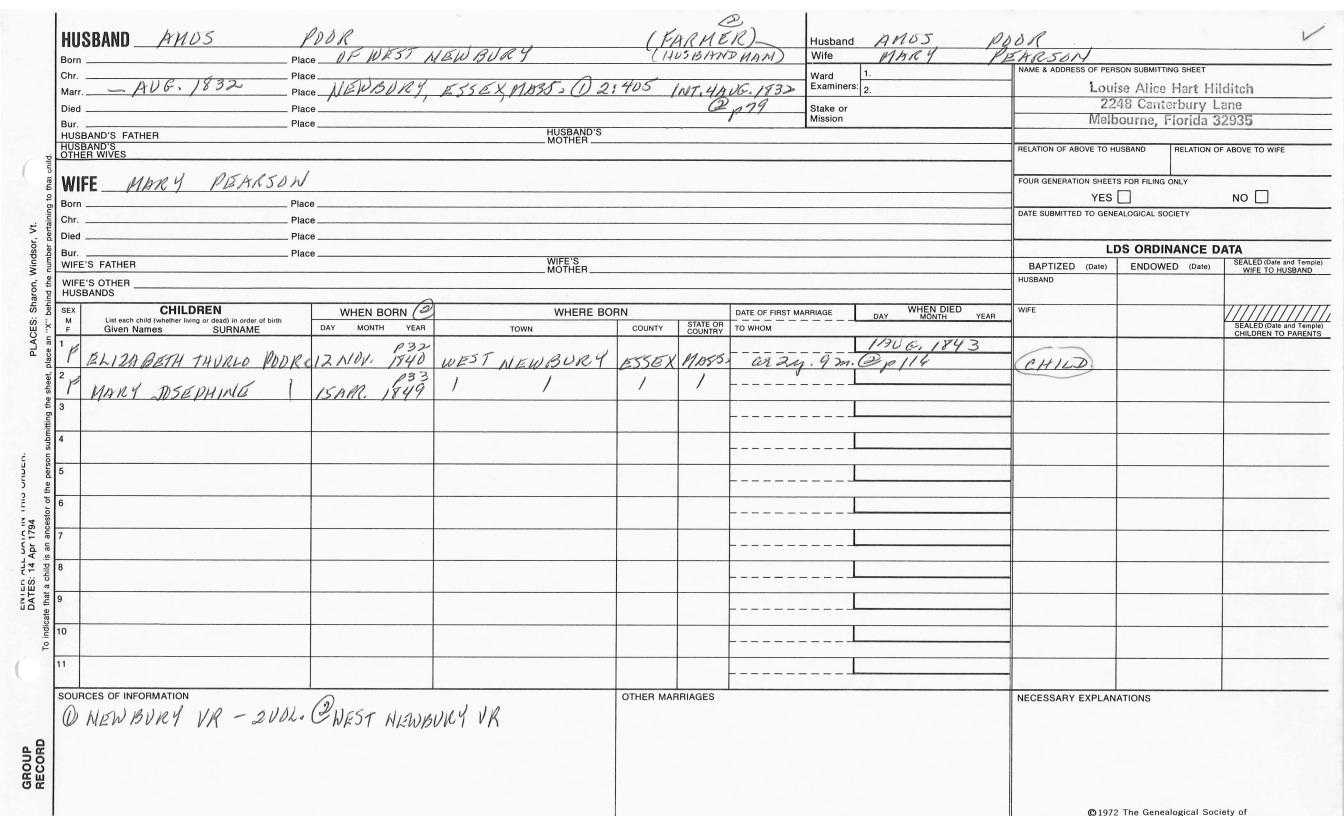 ②
HUSBAND AMOS POOR (FARMER)
Born Place OF WEST NEWBURY (HUSBANDMAN)
Chr. Place
Marr. — AUG. 1832 Place NEWBURY, ESSEX, MASS. ① 2:405 INT. 4 AUG. 1832
Died Place ② p79
Bur. Place
HUSBAND'S FATHER HUSBAND'S MOTHER
HUSBAND'S OTHER WIVES
Husband AMOS POOR
Wife MARY PEARSON
Ward Examiners: 1.
2.
Stake or Mission
NAME & ADDRESS OF PERSON SUBMITTING SHEET
Louise Alice Hart Hilditch
2248 Canterbury Lane
Melbourne, Florida 32935
RELATION OF ABOVE TO HUSBAND RELATION OF ABOVE TO WIFE
FOUR GENERATION SHEETS FOR FILING ONLY
YES NO
DATE SUBMITTED TO GENEALOGICAL SOCIETY
WIFE MARY PEARSON
Born Place
Chr. Place
Died Place
Bur. Place
WIFE'S FATHER WIFE'S MOTHER
WIFE'S OTHER HUSBANDS
LDS ORDINANCE DATA
BAPTIZED (Date) ENDOWED (Date) SEALED (Date and Temple) WIFE TO HUSBAND
HUSBAND
WIFE
SEALED (Date and Temple) CHILDREN TO PARENTS
SEX M F
CHILDREN
List each child (whether living or dead) in order of birth
Given Names SURNAME
WHEN BORN ②
DAY MONTH YEAR
WHERE BORN
TOWN COUNTY STATE OR COUNTRY
DATE OF FIRST MARRIAGE
TO WHOM
WHEN DIED
DAY MONTH YEAR
1 p32 1 AUG. 1843
F ELIZABETH THURLO POOR 12 NOV. 1840 WEST NEWBURY ESSEX MASS. ae 2y. 9m. ② p116 CHILD
2 p33
F MARY JOSEPHINE 15 APR. 1849
3
4
5
6
7
8
9
10
11
SOURCES OF INFORMATION
① NEWBURY VR - 2 VOL. ② WEST NEWBURY VR
OTHER MARRIAGES
NECESSARY EXPLANATIONS
©1972 The Genealogical Society of
PLACES: Sharon, Windsor, Vt.
To indicate that a child is an ancestor of the person submitting the sheet, place an "X" behind the number pertaining to that child.
ENTER ALL DATA IN THIS ORDER:
DATES: 14 Apr 1794
GROUP RECORD